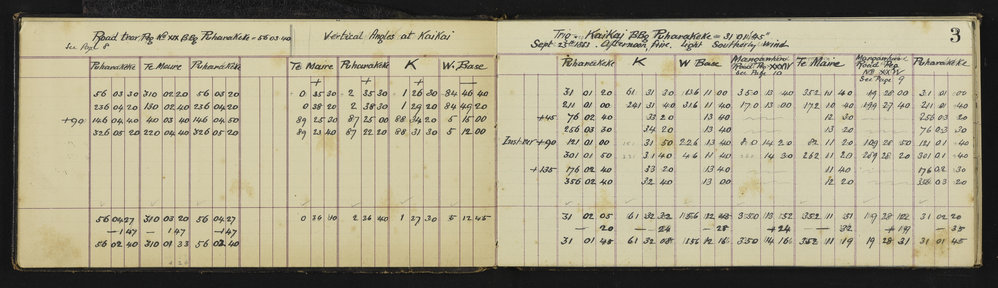 Road trav Peg No XIX BBg Puharakeke = 56 03 40
See Page 8
Vertical Angles at KaiKai
Puharakeke Te Maire Puharakeke Te Maire Puharakeke K W. Base
+ + + —
56 03 30 310 02 20 56 03 20 0 35 30 2 35 30 1 26 30 84 46 40
236 04 20 130 02 40 236 04 20 0 38 20 2 38 30 1 29 20 84 49 20
+90 146 04 40 40 03 40 146 04 50 89 25 30 87 25 00 88 34 20 5 15 00
326 05 20 220 04 40 326 05 20 89 23 40 87 22 20 88 31 30 5 12 00
56 04 27 310 03 20 56 04 27 0 36 10 2 36 40 1 27 30 5 12 45
— 1 47 — 1 47 — 1 47
56 02 40 310 01 33 56 02 40
3
Trig - KaiKai BBg Puharakeke = 31° 01' 45"
Sept 23rd 1881. Afternoon, fine, light Southerly Wind
Puharakeke K W Base Road Peg XXIV See Page 10 Te Maire Road Peg No XXIV See Page 9 Puharakeke
31 01 20 61 31 30 136 11 40 350 13 40 352 11 40 119 28 00 31 01 00
211 01 00 241 31 40 316 11 40 170 13 00 172 10 40 199 27 40 211 01 40
+45 76 02 40 33 20 13 40 12 30 256 03 20
256 03 30 34 20 13 40 13 20 76 03 30
+90 121 01 00 31 50 226 13 40 80 14 20 82 11 20 109 28 50 121 01 40
301 01 50 31 40 46 11 40 14 30 262 11 20 269 28 20 301 01 40
+135 176 02 40 33 20 13 40 11 40 176 02 30
356 02 40 32 40 13 00 12 20 356 03 20
31 02 05 61 32 32 136 12 43 350 13 52 352 11 51 31 02 20
— 20 — 24 — 28 + 24 — 32 + 19 — 35
31 01 45 61 32 08 136 12 16 350 14 16 352 11 19 119 28 31 31 01 45